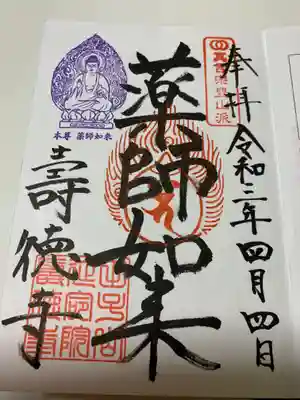 奉拝
令和三年四月四日
真言宗豊山派
薬師如来
本尊 薬師如来
壽徳寺